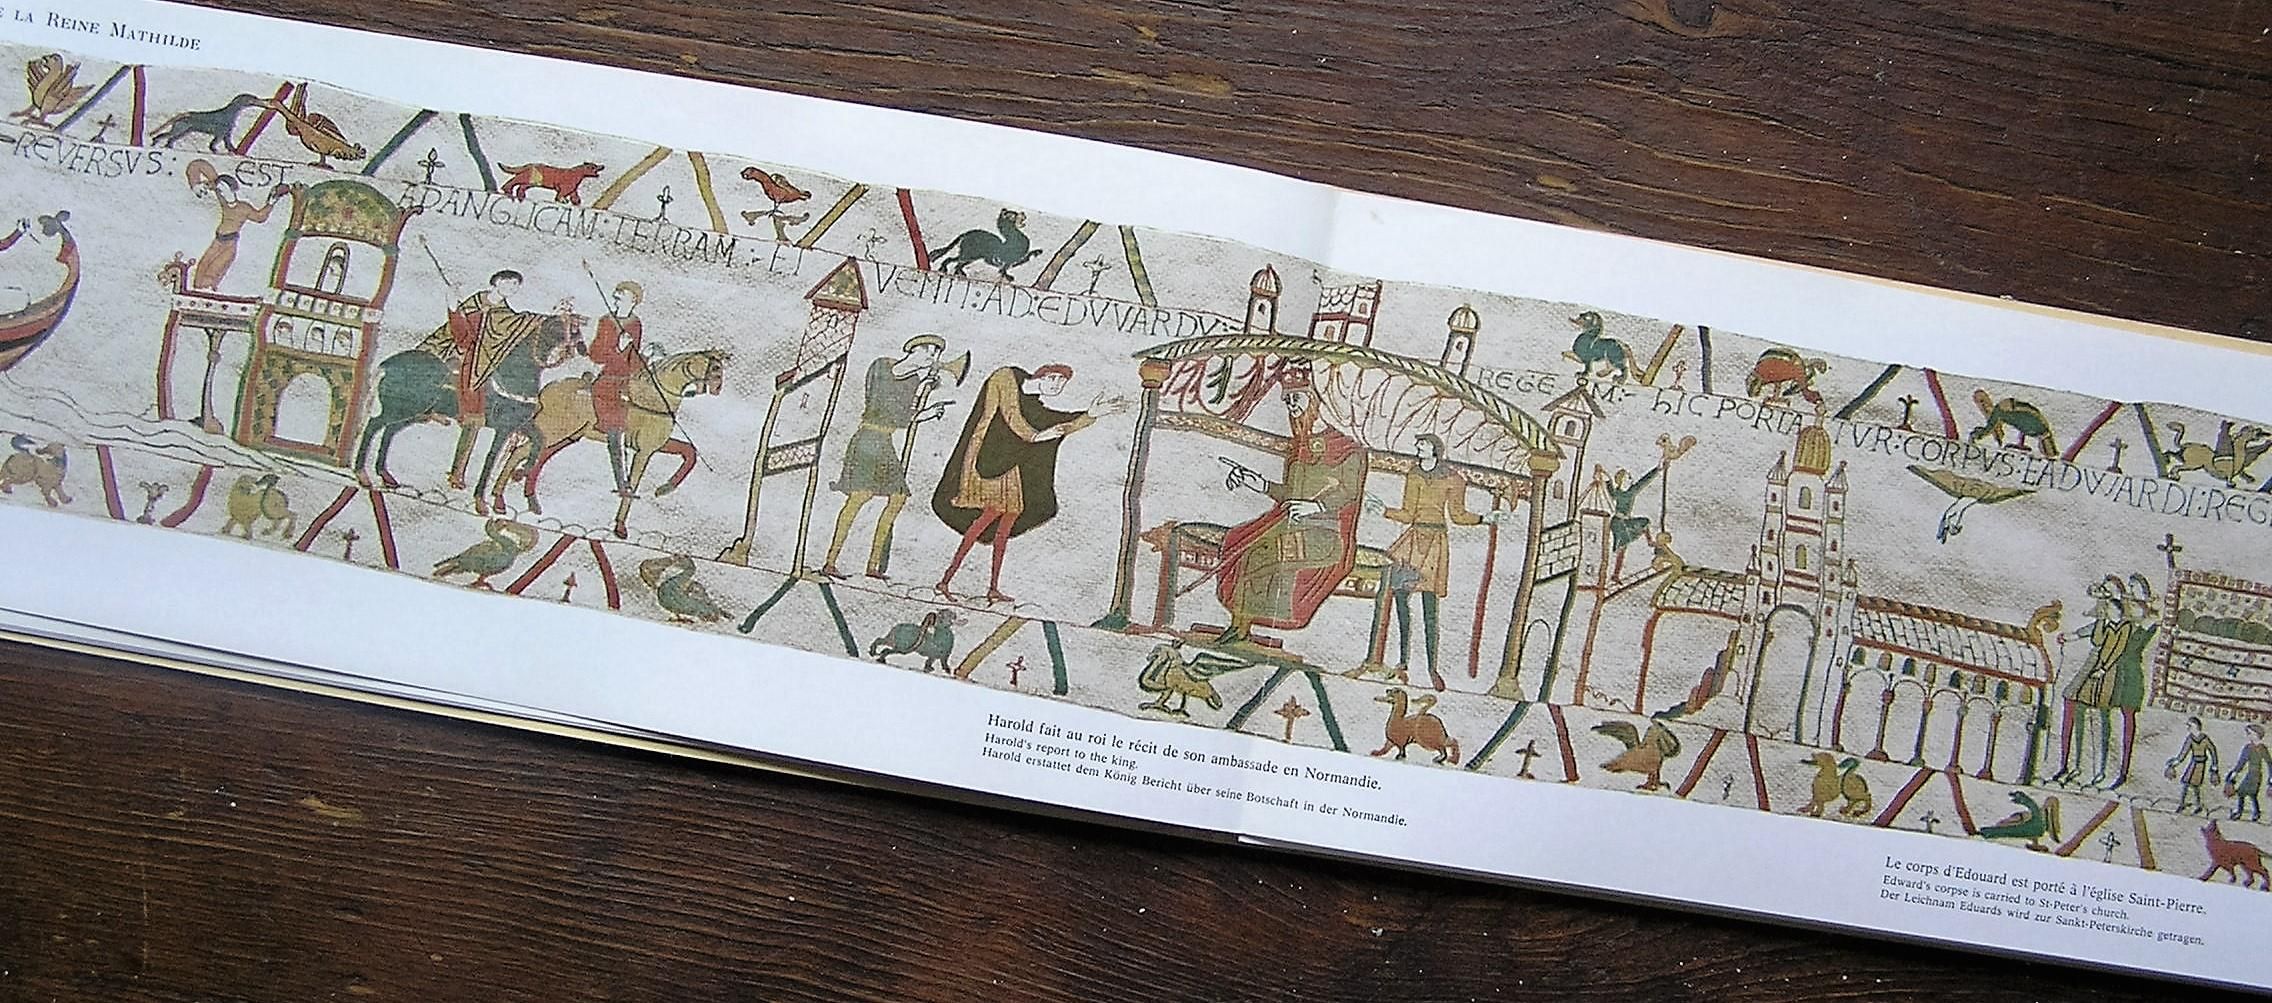 E LA REINE MATHILDE
REVERSVS : EST AD ANGLICAM : TERRAM :- ET VENIT : AD : EDVVARDV :- REGE M :- hIC PORTA TVR : CORPVS : EADVVARDI : REG
Harold fait au roi le récit de son ambassade en Normandie.
Harold's report to the king.
Harold erstattet dem König Bericht über seine Botschaft in der Normandie.
Le corps d'Edouard est porté à l'église Saint-Pierre.
Edward's corpse is carried to St-Peter's church.
Der Leichnam Eduards wird zur Sankt-Peterskirche getragen.